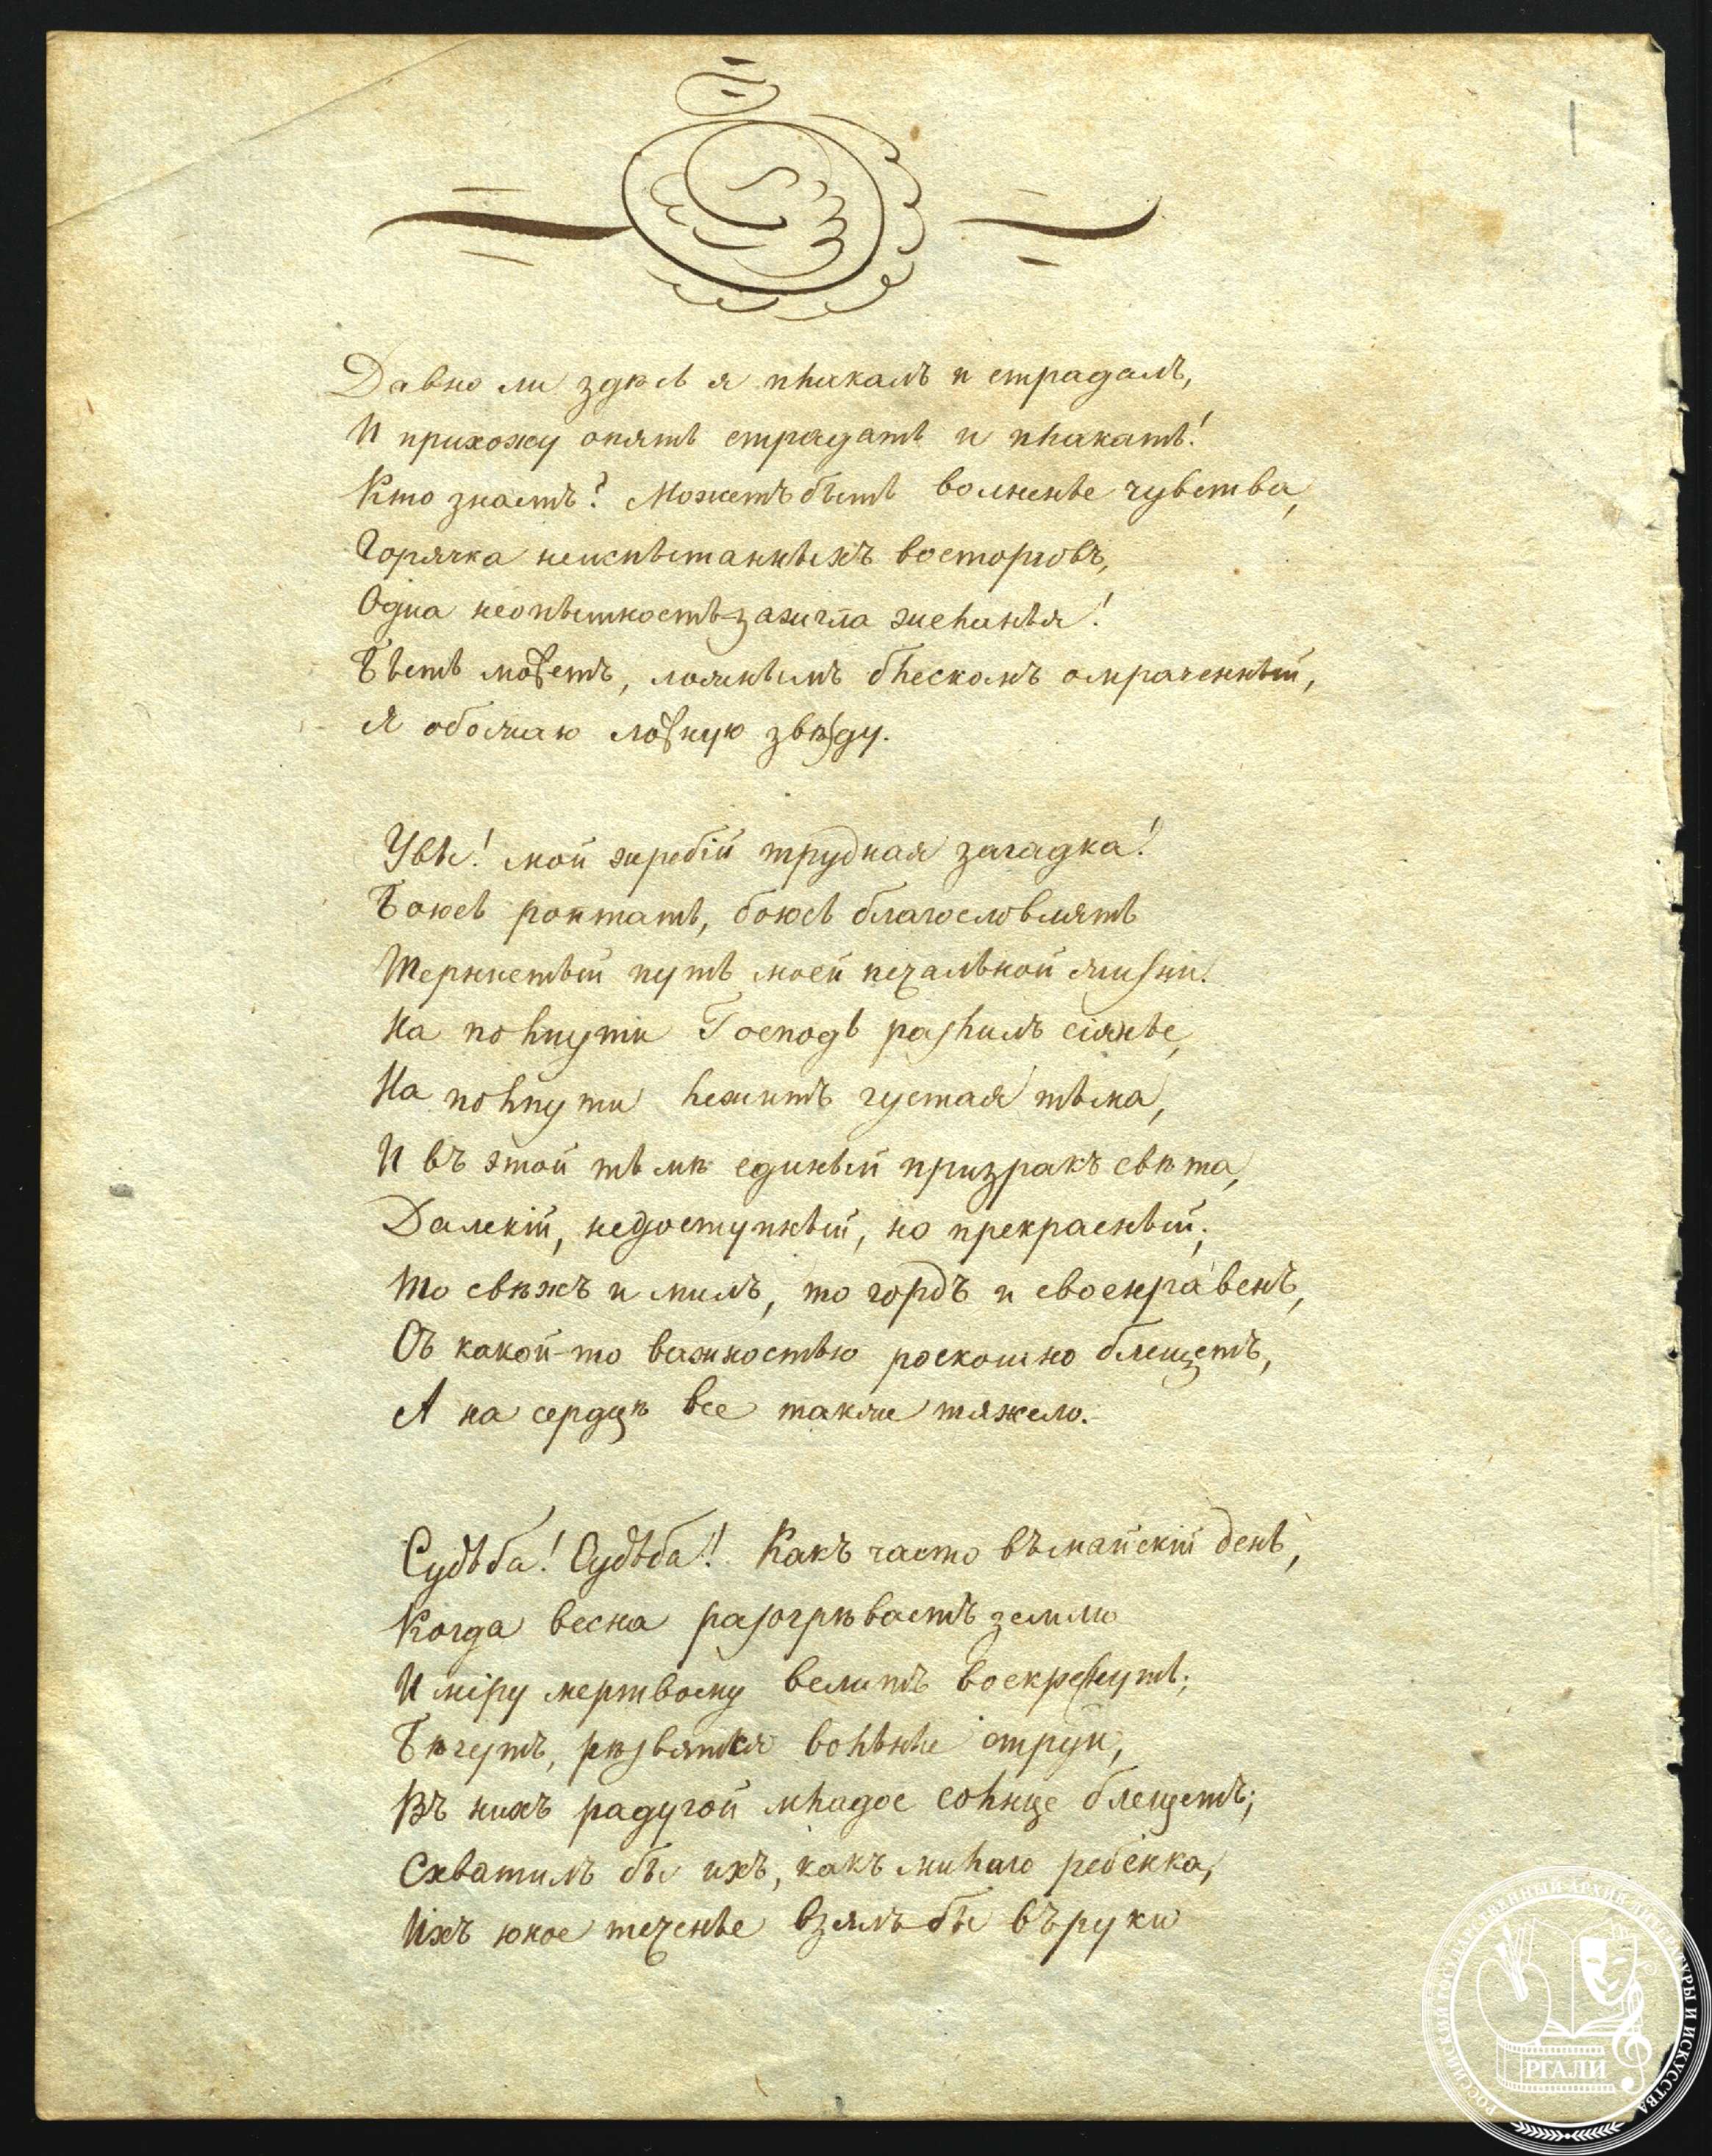 Давно ли здѣсь я плакалъ и страдалъ,
И прихожу опять страдать и плакать!
Кто знаетъ? Можетъ быть волненье чувства,
Горячка неиспытанныхъ восторговъ,
Одна неопытность зажгла желанья!
Быть можетъ, ложнымъ блескомъ омраченный,
Я обожаю ложную звѣзду.
Увы! мой жребій трудная загадка!
Боюсь роптать, боюсь благословлять
Тернистый путь моей печальной жизни.
На полпути Господь разлилъ сіянье,
На полпути лежитъ густая тьма,
И въ этой тьмѣ единый призракъ свѣта,
Далекій, недоступный, но прекрасный;
То свѣжъ и милъ, то гордъ и своенравенъ,
Съ какой-то важностью роскошно блещетъ,
А на сердцѣ все также тяжело.
Судьба! Судьба! Какъ часто въ майскій день,
Когда весна разогрѣваетъ землю
И міру мертвому велитъ воскреснуть;
Бѣгутъ, рѣзвятся вольные струи,
Въ нихъ радугой младое солнце блещетъ;
Схватилъ бы ихъ, какъ милаго ребенка,
Ихъ юное теченье взялъ-бы въ руки
1
РОССИЙСКИЙ ГОСУДАРСТВЕННЫЙ АРХИВ ЛИТЕРАТУРЫ И ИСКУССТВА
РГАЛИ